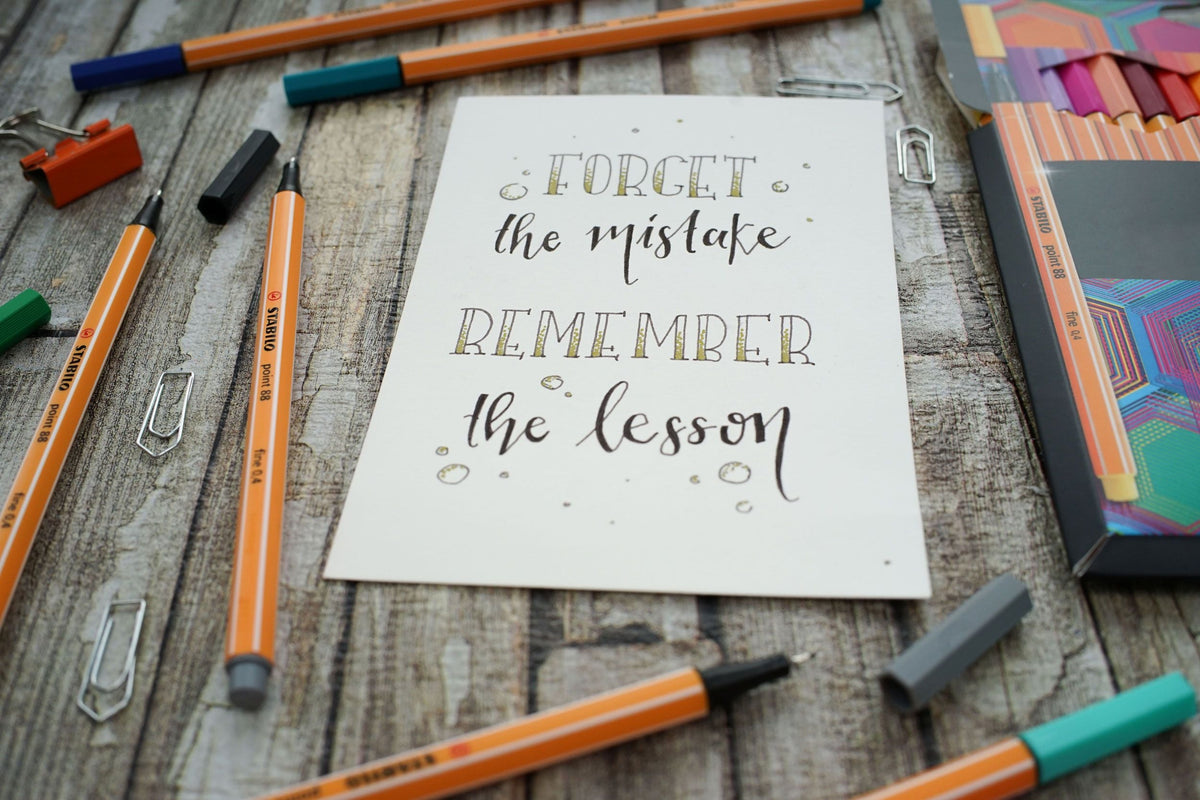 FORGET
the mistake
REMEMBER
the lesson
STABILO point 88 fine 0,4
STABILO point 88 fine 0,4
STABILO point 88 fine 0,4
STABILO